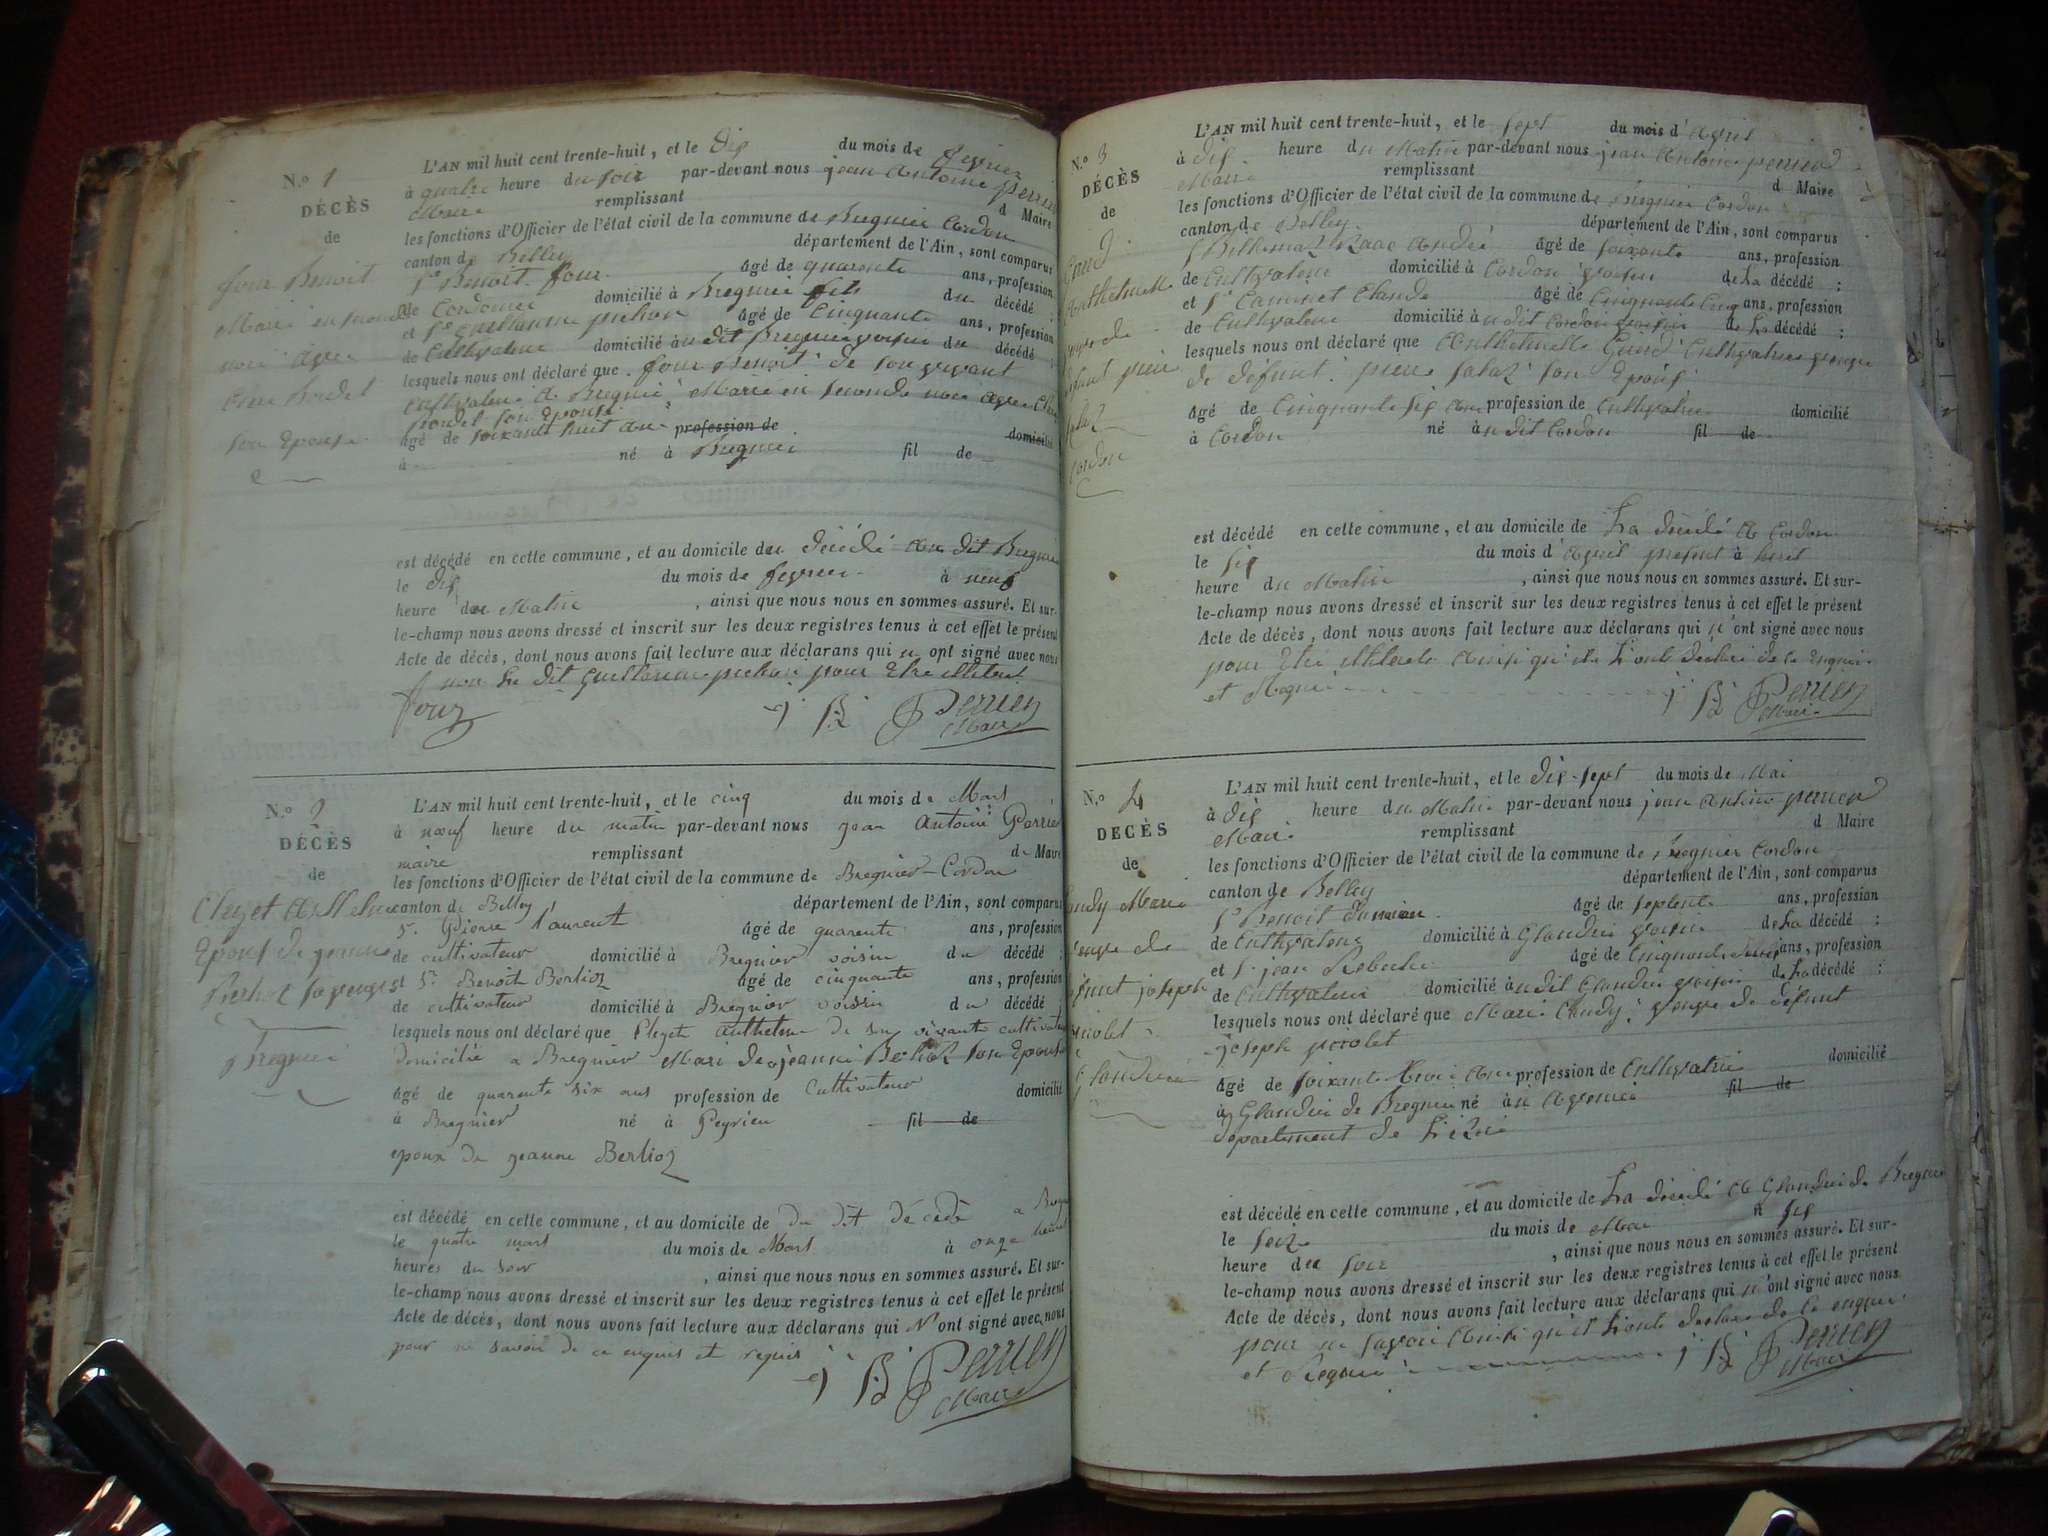 N.o 1
DÉCÈS
de
four Benoit
Marié en
noce avec
son Epouse
L'AN mil huit cent trente-huit, et le dix du mois de fevrier
à quatre heure du soir par-devant nous jean Antoine perrier
Maire remplissant d Maire
les fonctions d'Officier de l'état civil de la commune de Bregnier Cordon
canton de Belley département de l'Ain, sont comparus
Sr Benoit four âgé de quarante ans, profession
de Cordonier domicilié à Bregnier fils du décédé ;
et Sr Guillaume pichon âgé de Cinquante ans, profession
de Cultivateur domicilié à u dit Bregnier voisin du décédé ;
lesquels nous ont déclaré que four Benoit de son vivant
Cultivateur à Bregnier Marié en seconde noce avec
son Epouse
âgé de soixante huit ans profession de domicilié
à né à Bregnier fil de
est décédé en cette commune, et au domicile du décédé au dit Bregnier
le dix du mois de fevrier à neuf
heure du Matin , ainsi que nous nous en sommes assuré. Et sur-
le-champ nous avons dressé et inscrit sur les deux registres tenus à cet effet le présent
Acte de décès, dont nous avons fait lecture aux déclarans qui ont signé avec nous
non Le dit Guillaume pichon pour Etre illiteré
four Perrier
Maire
N.o 2
DÉCÈS
de
Cleyet
Epoux de jeanne
Bregnier
L'AN mil huit cent trente-huit, et le cinq du mois de Mars
à nœuf heure du matin par-devant nous jean Antoine Perrier
maire remplissant de Maire
les fonctions d'Officier de l'état civil de la commune de Bregnier-Cordon
canton de Belley département de l'Ain, sont comparus
Sr. Pierre Laurent âgé de quarente ans, profession
de cultivateur domicilié à Bregnier voisin du décédé ;
et Sr. Benoit Berlioz âgé de cinquante ans, profession
de cultivateur domicilié à Bregnier voisin du décédé ;
lesquels nous ont déclaré que Cleyet Anthelme de son vivant cultivateur
domicilié a Bregnier Mari de jeanne Berlioz son Epouse
âgé de quarente six ans profession de Cultivateur domicilié
à Bregnier né à Peyrieu fil de
epoux de jeanne Berlioz
est décédé en cette commune, et au domicile de du dit décédé a
le quatre mars du mois de Mars à onze heures
heures du soir , ainsi que nous nous en sommes assuré. Et sur-
le-champ nous avons dressé et inscrit sur les deux registres tenus à cet effet le présent
Acte de décès, dont nous avons fait lecture aux déclarans qui N'ont signé avec nous
pour ne savoir de ce enquis et requis
Perrier
Maire
N.o 3
DÉCÈS
de
Anthelmette
pierre
Cordon
L'AN mil huit cent trente-huit, et le sept du mois d'Avril
à dix heure du Matin par-devant nous jean Antoine perrier
Maire remplissant d Maire
les fonctions d'Officier de l'état civil de la commune de Bregnier Cordon
canton de Belley département de l'Ain, sont comparus
André âgé de soixante ans, profession
de Cultivateur domicilié à Cordon voisin de La décédé ;
et Sr Claude âgé de Cinquante Cinq ans, profession
de Cultivateur domicilié à u dit Cordon voisin de La décédé ;
lesquels nous ont déclaré que Anthelmette
de défunt pierre son Epoux
âgé de Cinquante six ans profession de Cultivatrice domicilié
à Cordon né à u dit Cordon fil de
est décédé en cette commune, et au domicile de La décédé a Cordon
le six du mois d'Avril present à huit
heure du Matin , ainsi que nous nous en sommes assuré. Et sur-
le-champ nous avons dressé et inscrit sur les deux registres tenus à cet effet le présent
Acte de décès, dont nous avons fait lecture aux déclarans qui n'ont signé avec nous
pour Etre illiteré Ainsi qu'ils L'ont declaré de ce enquis
et Requis
Perrier
Maire
N.o 4
DÉCÈS
de
Marie
joseph
Glandieu
L'AN mil huit cent trente-huit, et le dix-sept du mois de Mai
à dix heure du Matin par-devant nous jean Antoine perrier
Maire remplissant d Maire
les fonctions d'Officier de l'état civil de la commune de Bregnier Cordon
canton de Belley département de l'Ain, sont comparus
Sr Benoit âgé de septente ans, profession
de Cultivateur domicilié à Glandieu voisin de La décédé ;
et Sr jean âgé de Cinquante ans, profession
de Cultivateur domicilié à u dit Glandieu voisin de La décédé ;
lesquels nous ont déclaré que Marie veuve de défunt
joseph
âgé de soixante trois ans profession de Cultivatrice domicilié
à Glandieu de Bregnier né à fil de
département de L'izere
est décédé en cette commune, et au domicile de La décédé a Glandieu de Bregnier
le seize du mois de Mai à six
heure du soir , ainsi que nous nous en sommes assuré. Et sur-
le-champ nous avons dressé et inscrit sur les deux registres tenus à cet effet le présent
Acte de décès, dont nous avons fait lecture aux déclarans qui n'ont signé avec nous
pour ne savoir Ainsi qu'il L'ont declaré de ce enquis
et Requis
Perrier
Maire